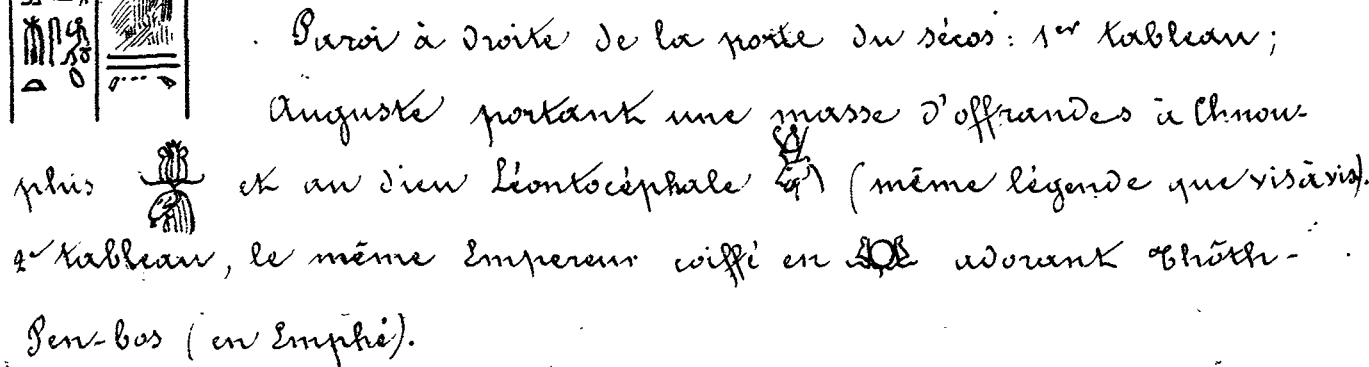 Paroi à droite de la porte du sécos: 1er tableau;
Auguste portant une masse d'offrandes à Chnou-
phis et au dieu Léontocéphale (même légende que visàvis).
2e tableau, le même Empereur coiffé en adorant Thôth-
Pen-bos (en Emphé).